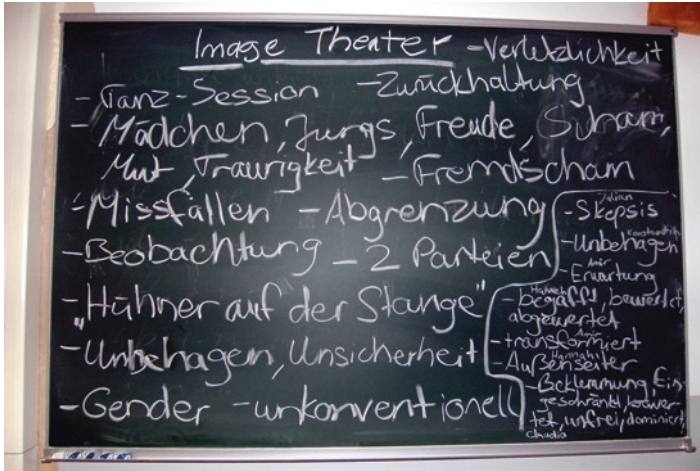 Image Theater - Verletzlichkeit
- Tanz-Session - Zurückhaltung
- Mädchen, Jungs, Freude, Scham,
Mut, Traurigkeit - Fremdscham
- Missfallen - Abgrenzung
- Beobachtung - 2 Parteien
- "Hühner auf der Stange"
- Unbehagen, Unsicherheit
- Gender - unkonventionell
Julian
- Skepsis
- Unbehagen
Amir
- Erwartung
Hannah
- begafft, bewertet,
abgewertet
Amir
- transformiert
Hannah
- Außenseiter
- Beklemmung, Ein-
geschränkt, bewer-
tet, unfrei, dominiert
Claudia